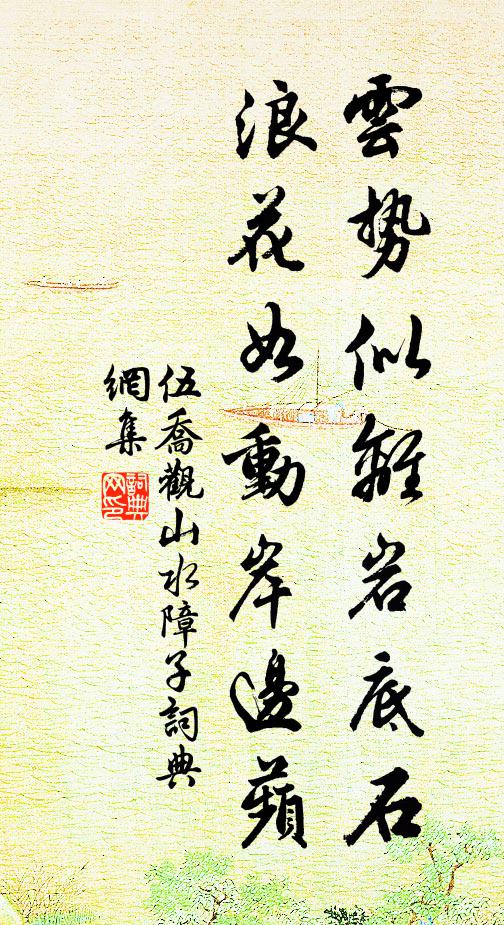 雲勢似離岩底石
浪花如動岸邊蘋
伍喬觀山水障子詞典
網集
詞典
网印